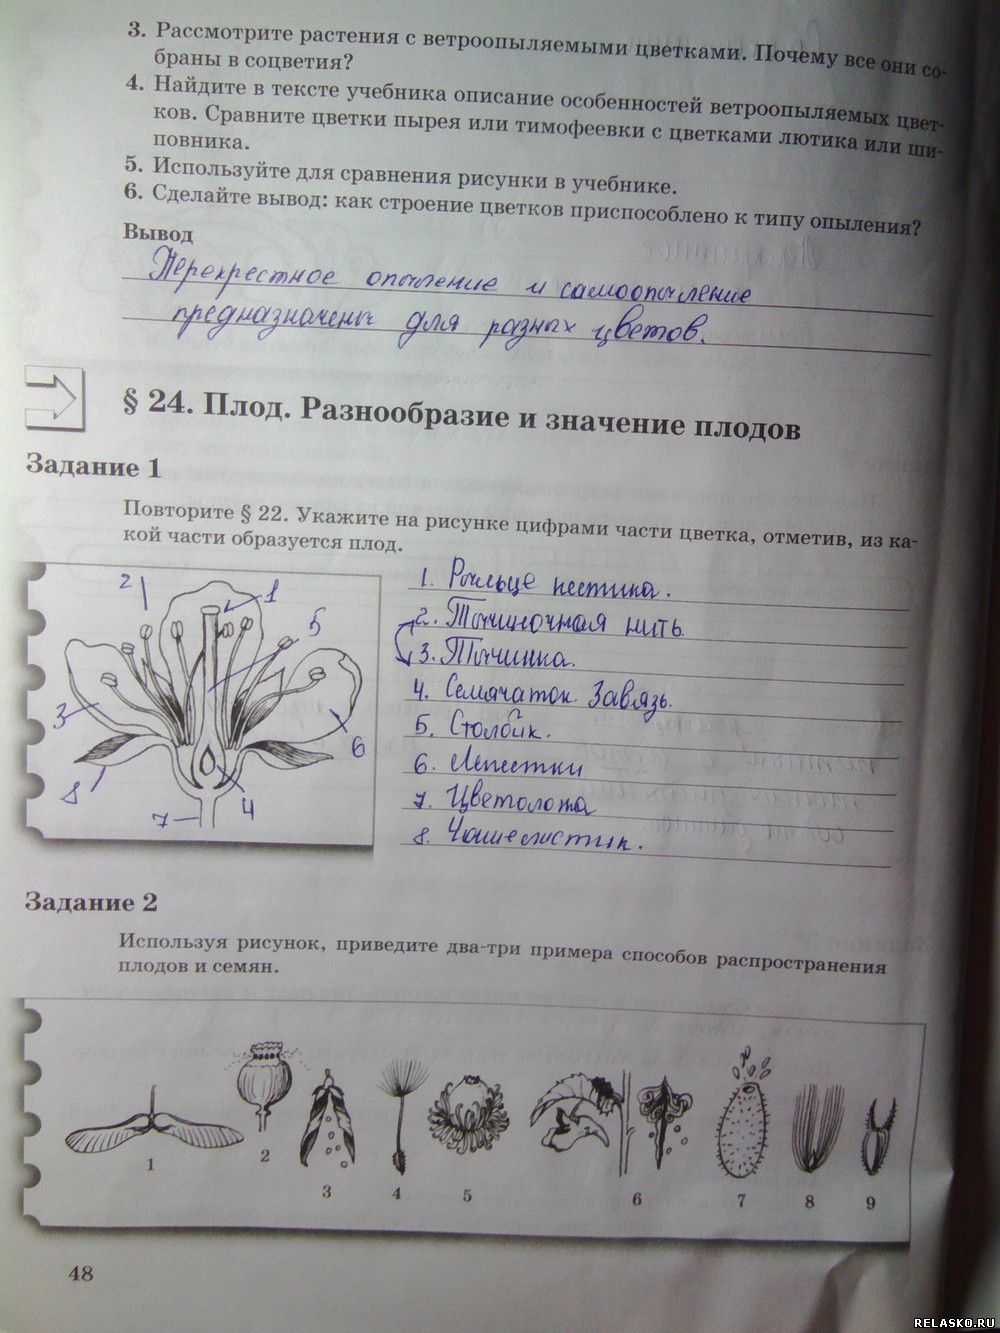 3. Рассмотрите растения с ветроопыляемыми цветками. Почему все они со-
браны в соцветия?
4. Найдите в тексте учебника описание особенностей ветроопыляемых цвет-
ков. Сравните цветки пырея или тимофеевки с цветками лютика или ши-
повника.
5. Используйте для сравнения рисунки в учебнике.
6. Сделайте вывод: как строение цветков приспособлено к типу опыления?
Вывод
Перекрестное опыление и самоопыление
предназначены для разных цветов.
§ 24. Плод. Разнообразие и значение плодов
Задание 1
Повторите § 22. Укажите на рисунке цифрами части цветка, отметив, из ка-
кой части образуется плод.
2 1 5 3 6 8 4 7
1. Рыльце пестика.
2. Тычиночная нить.
3. Тычинка.
4. Семячаток. Завязь.
5. Столбик.
6. Лепестки
7. Цветоложа
8. Чашелистик.
Задание 2
Используя рисунок, приведите два-три примера способов распространения
плодов и семян.
1 2 3 4 5 6 7 8 9
48
RELASKO.RU